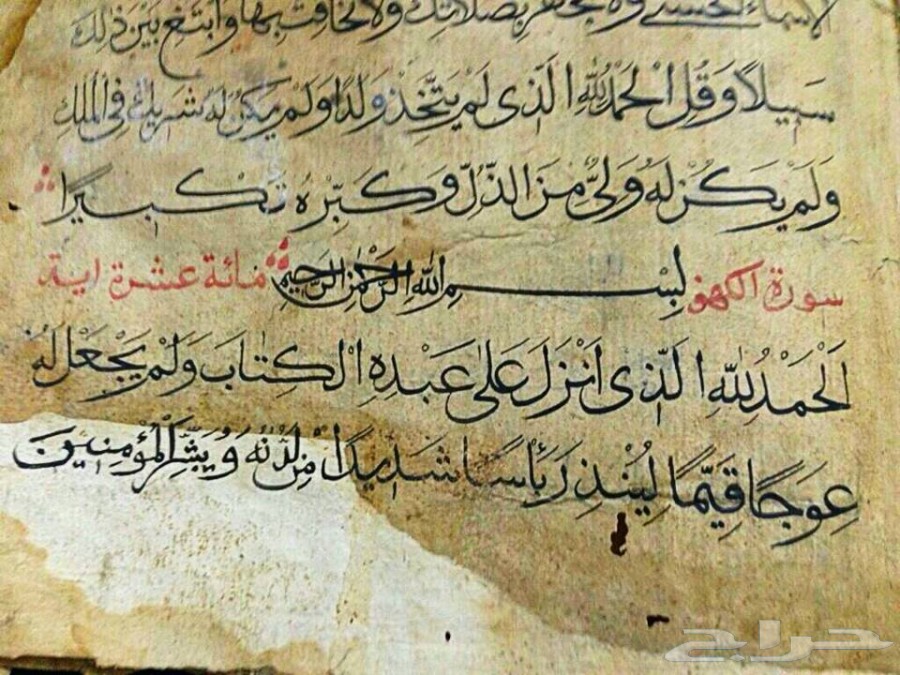 الاسماء الحسنى ولا تجهر بصلاتك ولا تخافت بها وابتغ بين ذلك
سَبيلاً وَقُلِ الْحَمْدُ لِلّٰهِ الَّذى لَمْ يَتَّخِذْ وَلَدًا وَلَمْ يَكُنْ لَهُ شَريكٌ فِى الْمُلْكِ
وَلَمْ يَكُنْ لَهُ وَلِىٌّ مِنَ الذُّلِّ وَكَبِّرْهُ تَكْبيرًا
سورة الكهف بِسْمِ اللّٰهِ الرَّحْمٰنِ الرَّحيمِ مائة عشرة اية
اَلْحَمْدُ لِلّٰهِ الَّذى اَنْزَلَ عَلٰى عَبْدِهِ الْكِتٰابَ وَلَمْ يَجْعَلْ لَهُ
عِوَجًا قَيِّمًا لِيُنْذِرَ بَأْسًا شَديدًا مِنْ لَدُنْهُ وَيُبَشِّرَ الْمُؤْمِنينَ
حراج